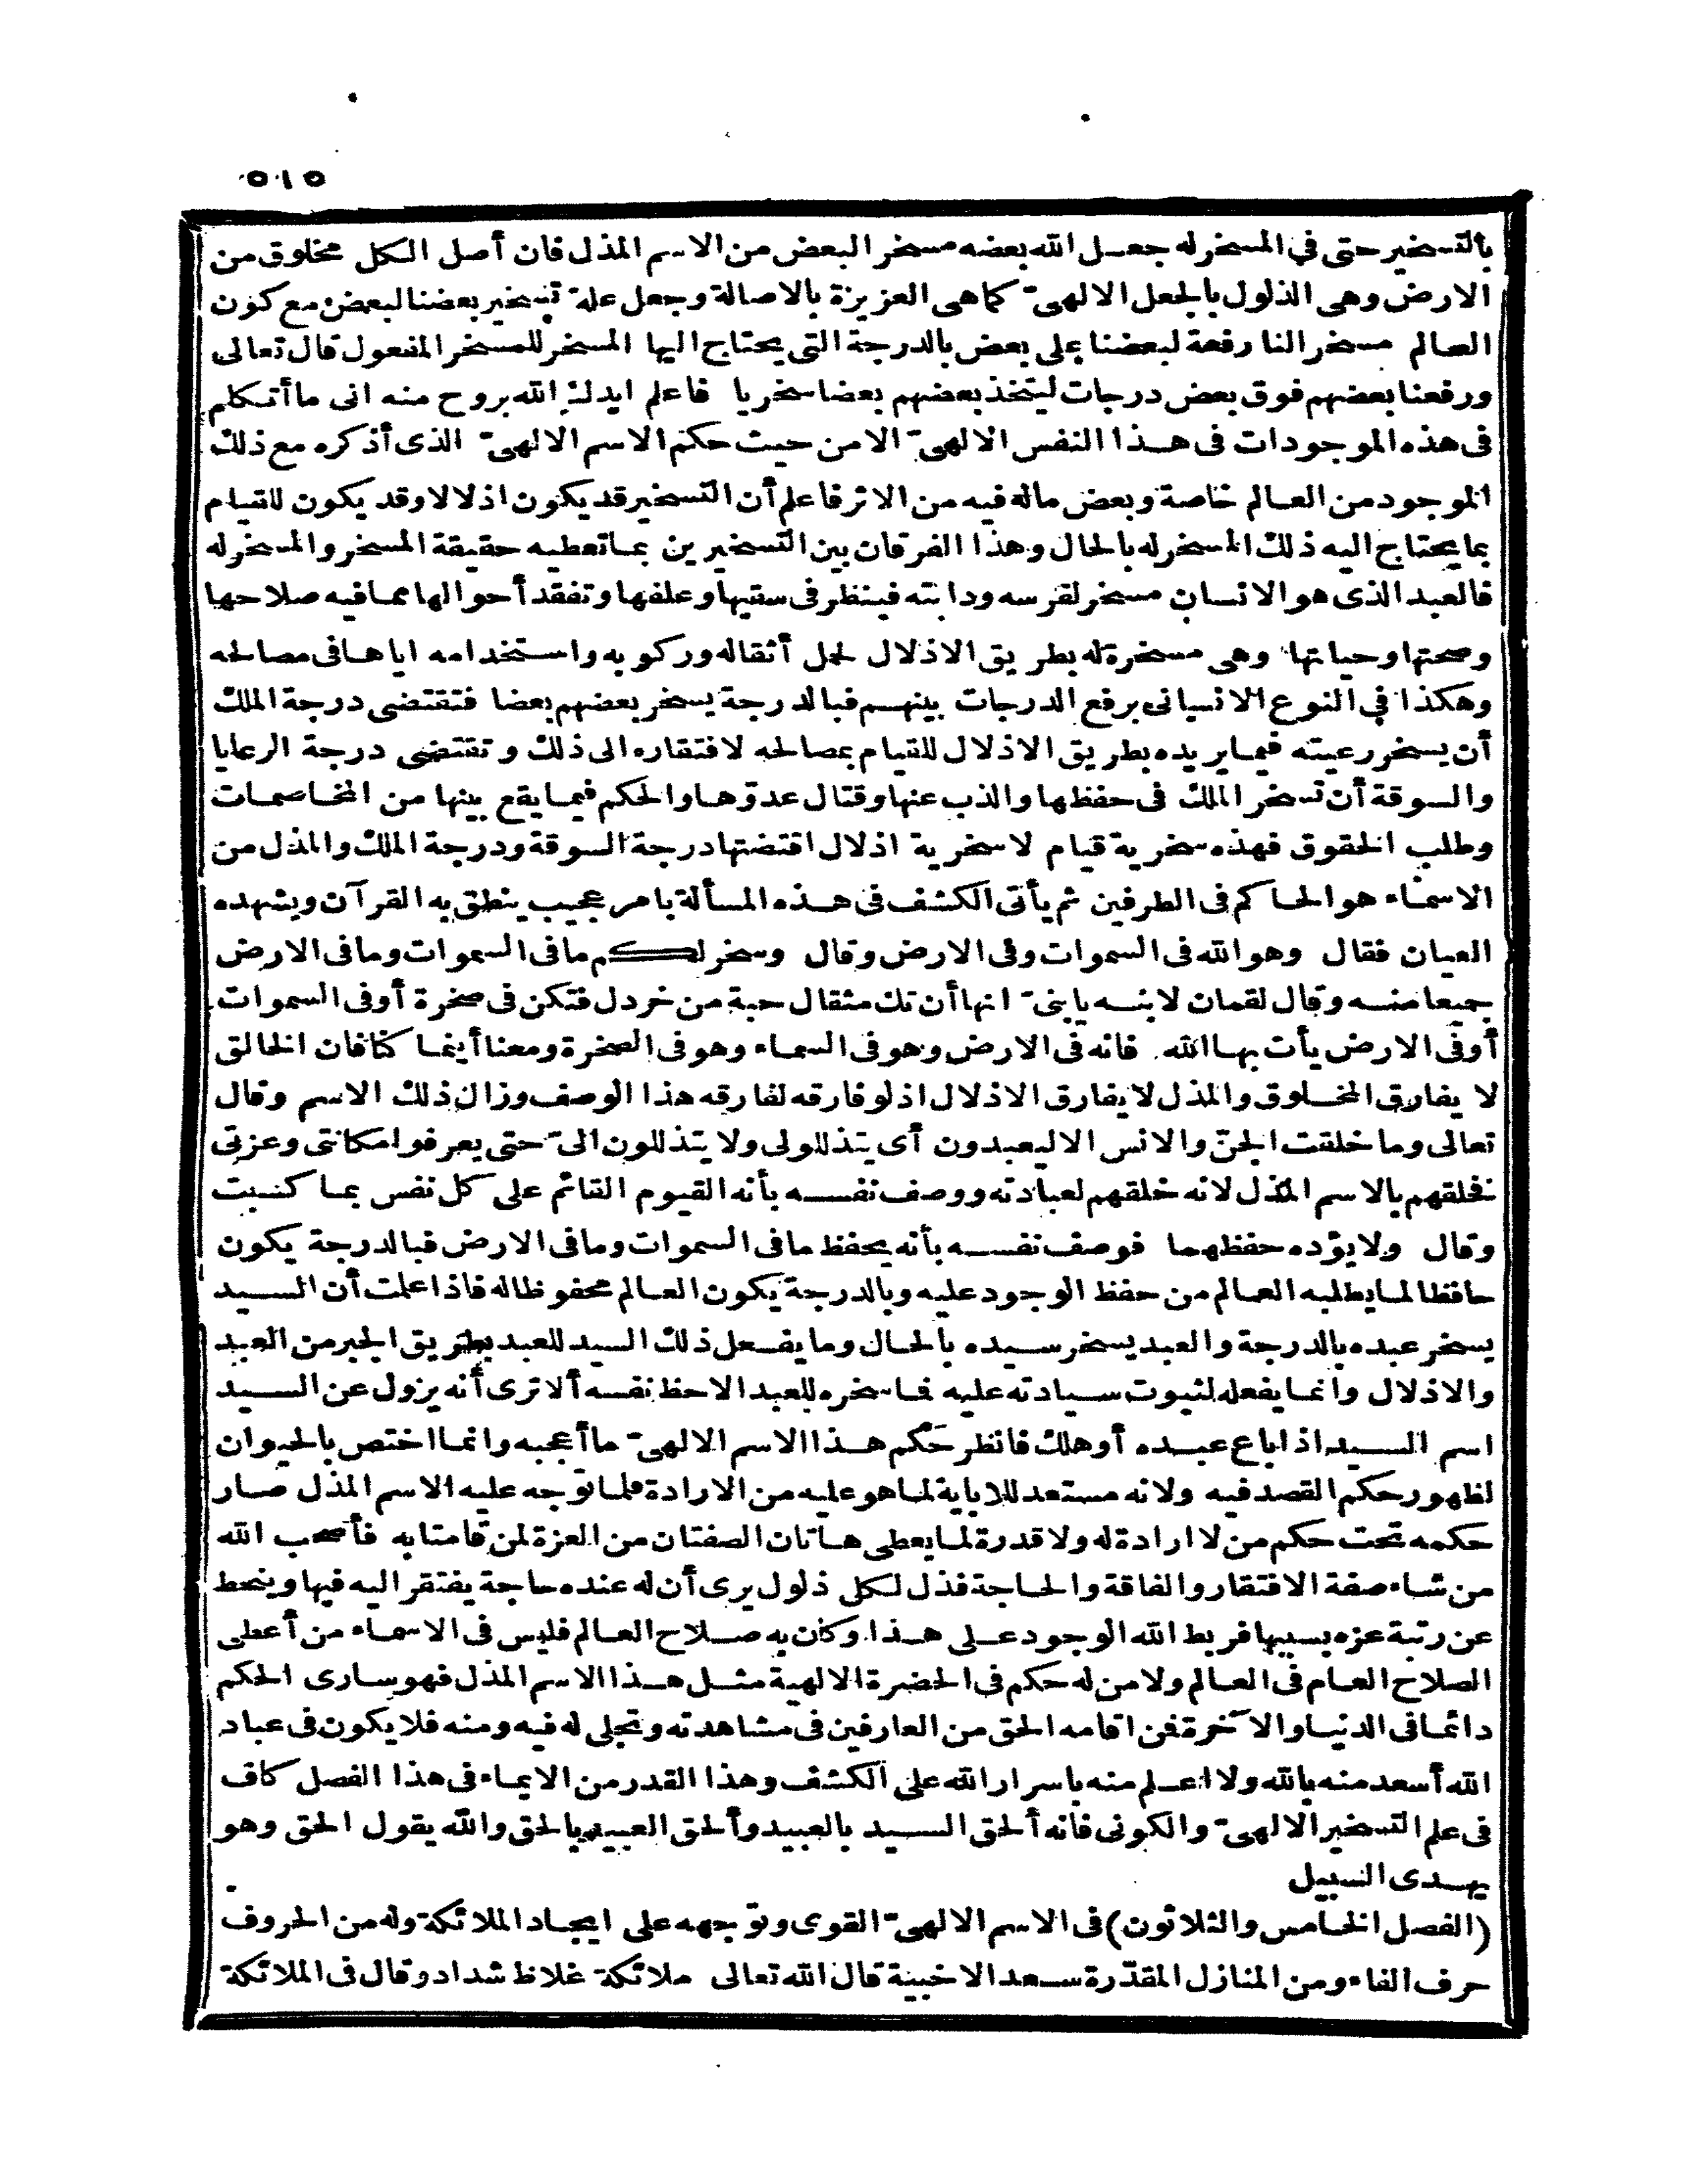 ٥١٥
بالتسخير حتى في المسخر له جعل الله بعضه مسخر البعض من الاسم المذل فان أصل الكل مخلوق من
الارض وهى الذلول بالجعل الالهىّ كماهى العزيزة بالاصالة وجعل علة تسخير بعضنا لبعض مع كون
العالم مسخرا لنا رفعة لبعضنا على بعض بالدرجة التى يحتاج اليها المسخر للمسخر المفعول قال تعالى
ورفعنا بعضهم فوق بعض درجات ليتخذ بعضهم بعضا سخريا فاعلم ايدك الله بروح منه انى ما أتكلم
فى هذه الموجودات فى هذا النفس الالهىّ الا من حيث حكم الاسم الالهىّ الذى أذكره مع ذلك
الموجود من العالم خاصة وبعض ماله فيه من الاثر فاعلم أن التسخير قد يكون اذلالا وقد يكون للقيام
بما يحتاج اليه ذلك المسخر له بالحال وهذا الفرقان بين التسخيرين بما تعطيه حقيقة المسخر والمسخر له
فالعبد الذى هو الانسان مسخر لفرسه ودابته فينظر فى سقيها وعلفها وتفقد أحوالها مما فيه صلاحها
وصحتها وحياتها وهى مسخرة له بطريق الاذلال لحمل أثقاله وركوبه واستخدامه اياها فى مصالحه
وهكذا فى النوع الانسانى برفع الدرجات بينهم فبالدرجة يسخر بعضهم بعضا فتقتضى درجة الملك
أن يسخر رعيته فيما يريده بطريق الاذلال للقيام بمصالحه لافتقاره الى ذلك وتقتضى درجة الرعايا
والسوقة أن تسخر الملك فى حفظها والذب عنها وقتال عدوّها والحكم فيما يقع بينها من المخاصمات
وطلب الحقوق فهذه سخرية قيام لا سخرية اذلال اقتضتها درجة السوقة ودرجة الملك والمذل من
الاسماء هو الحاكم فى الطرفين ثم يأتى الكشف فى هذه المسألة بامر عجيب ينطق به القرآن ويشهده
العيان فقال وهو الله فى السموات وفى الارض وقال وسخر لكم ما فى السموات وما فى الارض
جميعا منه وقال لقمان لابنه يا بنىّ انها أن تك مثقال حبة من خردل فتكن فى صخرة أو فى السموات
أو فى الارض يأت بها الله فانه فى الارض وهو فى السماء وهو فى الصخرة ومعنا أينما كنا فان الخالق
لا يفارق المخلوق والمذل لا يفارق الاذلال اذ لو فارقه لفارقه هذا الوصف وزال ذلك الاسم وقال
تعالى وما خلقت الجنّ والانس الا ليعبدون أى يتذللوا لى ولا يتذللون الىّ حتى يعرفوا مكانتى وعزتى
فخلقهم بالاسم المذل لانه خلقهم لعبادته ووصف نفسه بأنه القيوم القائم على كل نفس بما كسبت
وقال ولا يؤده حفظهما فوصف نفسه بأنه يحفظ ما فى السموات وما فى الارض فبالدرجة يكون
حافظا لما يطلبه العالم من حفظ الوجود عليه وبالدرجة يكون العالم محفوظا له فاذا علمت أن السيد
يسخر عبده بالدرجة والعبد يسخر سيده بالحال وما يفعل ذلك السيد للعبد بطريق الجبر من العبد
والاذلال وانما يفعله لثبوت سيادته عليه فما سخره للعبد الا حظ نفسه ألا ترى أنه يزول عن السيد
اسم السيد اذا باع عبده أو هلك فانظر حكم هذا الاسم الالهىّ ما أعجبه وانما اختص بالحيوان
لظهور حكم القصد فيه ولانه مستعد للاباية لما هو عليه من الارادة فلما توجه عليه الاسم المذل صار
حكمه تحت حكم من لا ارادة له ولا قدرة لما يعطى هاتان الصفتان من العزة لمن قامتا به فأصحب الله
من شاء صفة الافتقار والفاقة والحاجة فذل لكل ذلول يرى أن له عنده حاجة يفتقر اليه فيها وينحط
عن رتبة عزه بسببها فربط الله الوجود على هذا وكان به صلاح العالم فليس فى الاسماء من أعطى
الصلاح العام فى العالم ولا من له حكم فى الحضرة الالهية مثل هذا الاسم المذل فهو سارى الحكم
دائما فى الدنيا والآخرة فمن اقامه الحق من العارفين فى مشاهدته وتجلى له فيه ومنه فلا يكون فى عباد
الله أسعد منه بالله ولا اعلم منه باسرار الله على الكشف وهذا القدر من الايماء فى هذا الفصل كاف
فى علم التسخير الالهىّ والكونى فانه ألحق السيد بالعبيد وألحق العبيد بالحق والله يقول الحق وهو
يهدى السبيل
(الفصل الخامس والثلاثون) فى الاسم الالهىّ القوى وتوجهه على ايجاد الملائكة وله من الحروف
حرف الفاء ومن المنازل المقدّرة سعد الاخبية قال الله تعالى ملائكة غلاظ شداد وقال فى الملائكة